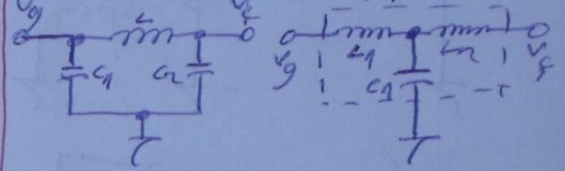 Vg L Vx
C1 C2
Vg L1 L2 Vx
C1